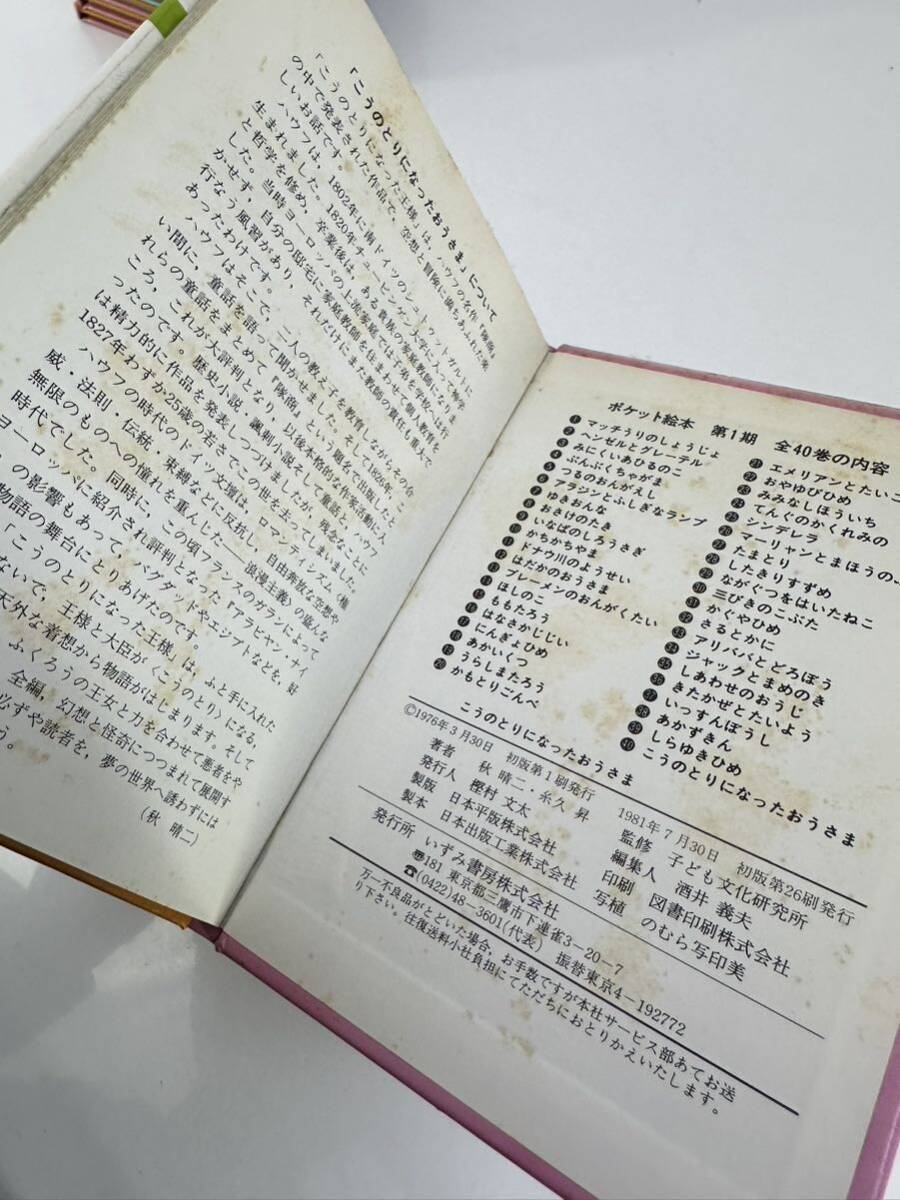 「こうのとりになったおうさま」について
「こうのとりになった王様」は、ハウフの名作『隊商』
の中で発表された作品で、空想と冒険に満ちあふれた楽
しいお話です。
ハウフは、1802年に南ドイツのシュトゥットガルトに
生まれました。1820年チュービンゲン大学に入って神学
と哲学を修め、卒業後は、ある貴族の家庭教師になりま
した。当時ヨーロッパの上流家庭では子弟を学校へは行
かせず、自分の邸宅に家庭教師を住まわせて個人教育を
行なう風習があり、それだけにまた教師の責任も重大で
あったわけです。
ハウフはそこで、二人の教え子を教育しながらその合
い間に、童話を語って聞かせました。そして1826年、こ
れらの童話をまとめて『隊商』という題名で出版したと
ころ、これが大評判となり、以後本格的な作家活動に入
ったのです。歴史小説・諷刺小説そして童話と、ハウフ
は精力的に作品を発表しつづけましたが、残念なことに
1827年わずか25歳の若さでこの世を去ってしまいました。
ハウフの時代のドイツ文壇は、ロマンティシズム（権
威・法則・伝統・束縛などに反抗し、自由奔放な空想や
無限のものへの憧れを重んじた──浪漫主義）の盛んな
時代でした。同時に、この頃フランスのガランによって
ヨーロッパに紹介され評判となった『アラビヤン・ナイ
』の影響もあって、バグダッドやエジプトなどを、好
物語の舞台にとりあげたのです。
「こうのとりになった王様」は、ふと手に入れた
ないで、王様と大臣が〈こうのとり〉になる、
天外な着想から物語がはじまります。そして
ふくろうの王女と力を合わせて悪者をや
全編、幻想と怪奇につつまれて展開す
必ずや読者を、夢の世界へ誘わずには
う。
（秋 晴二）
ポケット絵本 第1期 全40巻の内容
❶マッチうりのしょうじょ
❷ヘンゼルとグレーテル
❸みにくいあひるのこ
❹ぶんぶくちゃがま
❺つるのおんがえし
❻アラジンとふしぎなランプ
❼ゆきおんな
❽おさけのたき
❾いなばのしろうさぎ
❿かちかちやま
⓫ドナウ川のようせい
⓬はだかのおうさま
⓭ブレーメンのおんがくたい
⓮ほしのこ
⓯ももたろう
⓰はなさかじじい
⓱にんぎょひめ
⓲あかいくつ
⓳うらしまたろう
⓴かもとりごんべ
㉑エメリアンとたいこ
㉒おやゆびひめ
㉓みみなしほういち
㉔てんぐのかくれみの
㉕シンデレラ
㉖マーリャンとまほうの
㉗たまとり
㉘したきりすずめ
㉙ながぐつをはいたねこ
㉚三びきのこぶた
㉛かぐやひめ
㉜さるとかに
㉝アリババとどろぼう
㉞ジャックとまめのき
㉟しあわせのおうじ
㊱きたかぜとたいよう
㊲いっすんぼうし
㊳あかずきん
㊴しらゆきひめ
㊵こうのとりになったおうさま
こうのとりになったおうさま
©1976年3月30日 初版第1刷発行 1981年7月30日 初版第26刷発行
著者 秋 晴二・糸久 昇 監修 子ども文化研究所
発行人 樫村 文太 編集人 酒井 義夫
製版 日本平版株式会社 印刷 図書印刷株式会社
製本 日本出版工業株式会社 写植 のむら写印美
発行所 いずみ書房株式会社
〠181 東京都三鷹市下連雀3-20-7
☎(0422)48-3601(代表) 振替東京4-192772
万一不良品がとどいた場合、お手数ですが本社サービス部あてお送
り下さい。往復送料小社負担にてただちにおとりかえいたします。